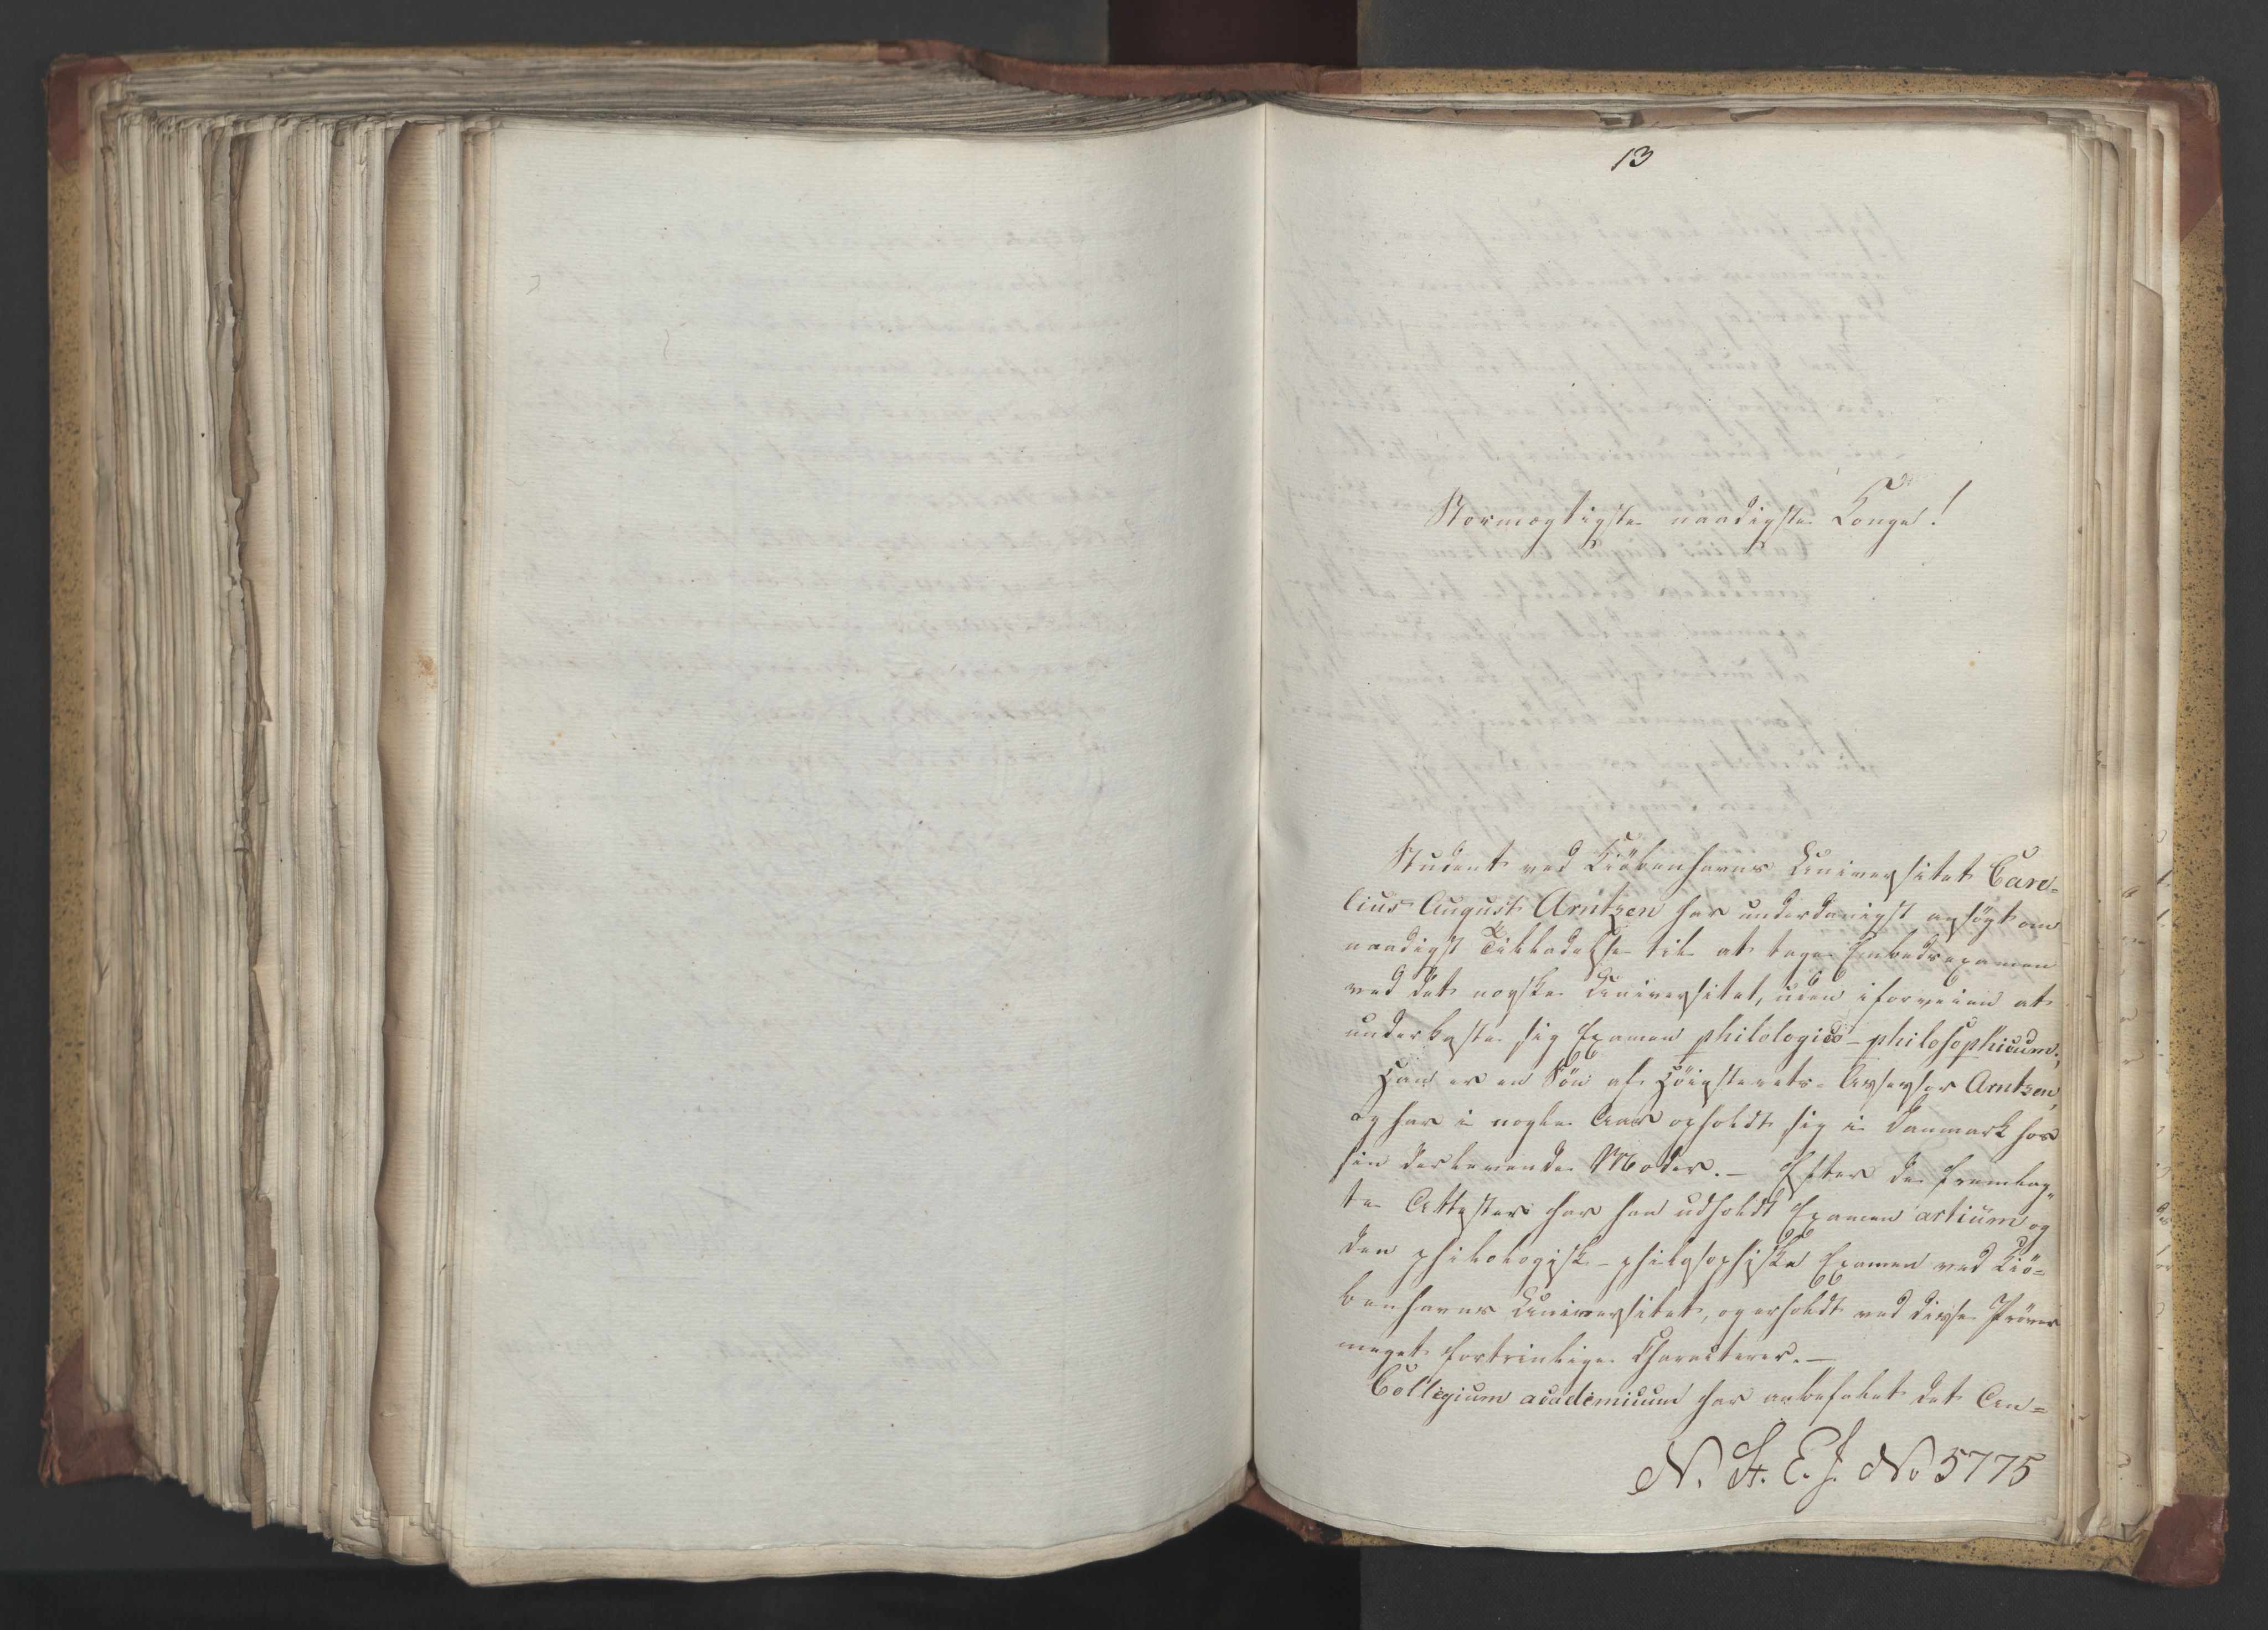 13
Stormægtigste naadigste Konge!
Student ved Kiöbenhavns Universitet Caro-
lius August Arntzen har underdanigst ansögt om
naadigst Tilladelse til at tage Embedsexamen
ved det norske Universitet, uden iforveien at
underkaste sig Examen philologico-philosophicum;
Han er en Sön af Höiesterets-Assessor Arntzen,
og har i nogle Aar opholdt sig i Danmark hos
sin derlevende Moder. — Efter de fremlag-
te Attester har han udholdt Examen artium og
den philologisk-philosophiske Examen ved Kiö-
benhavns Universitet, og erholdt ved disse Pröver
meget fortrinlige Characterer. —
Collegium academicum har anbefalet det An-
N. St. E. J. No 5775